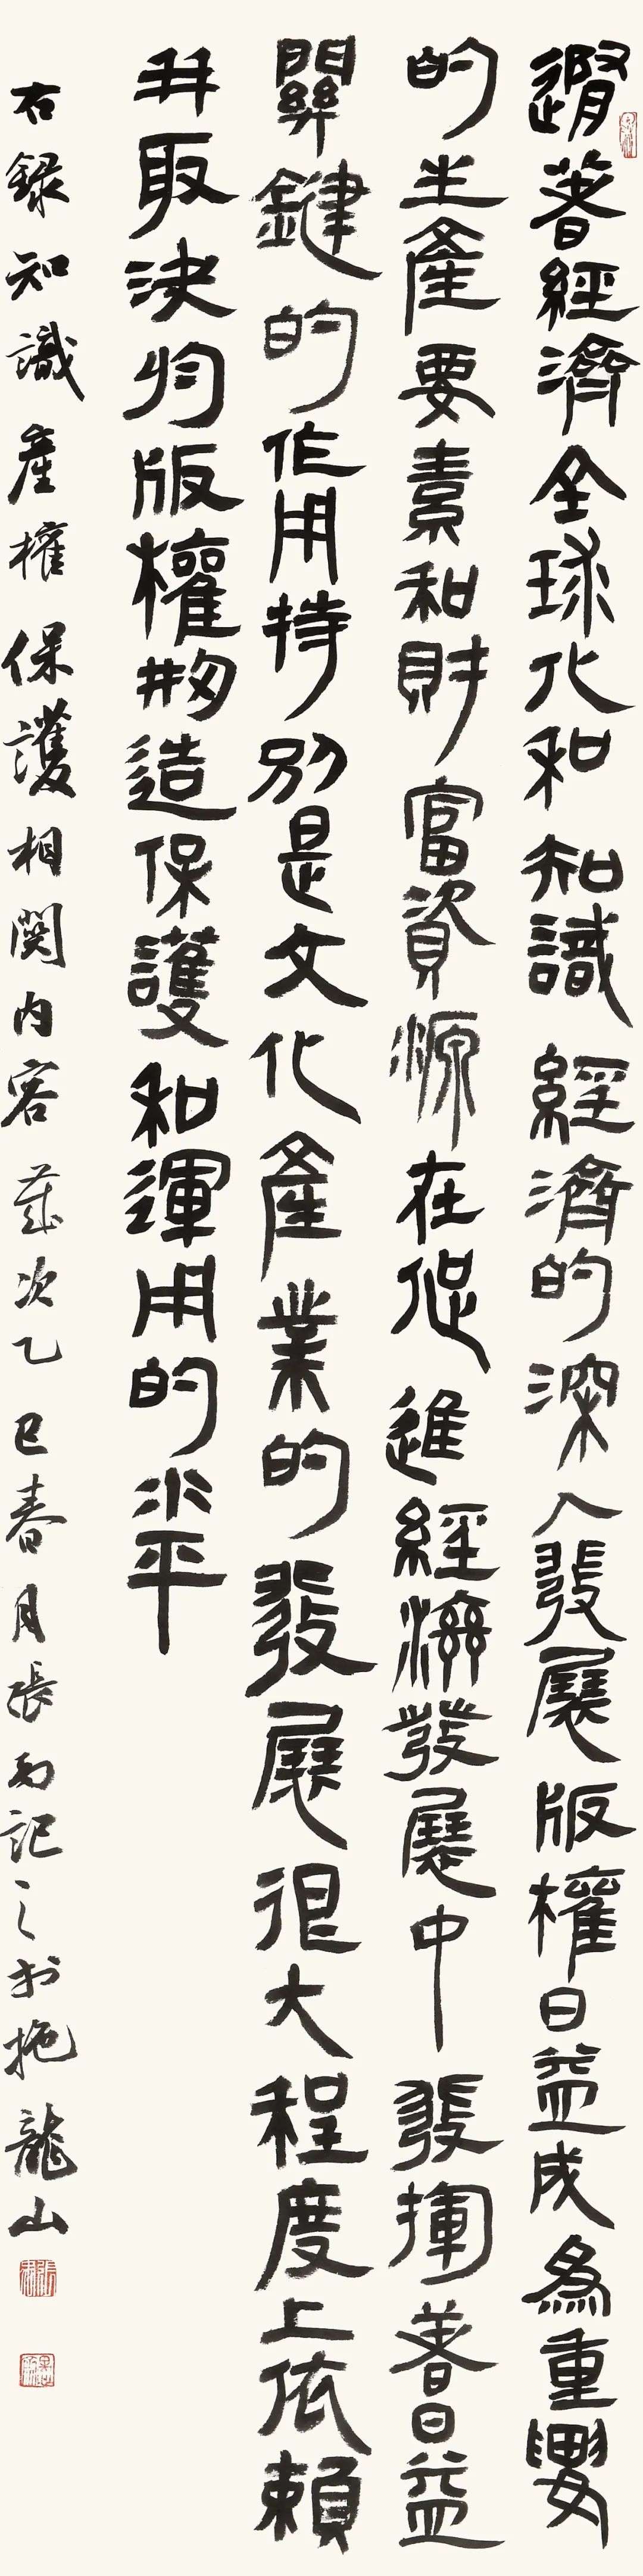 隨著經濟全球化和知識經濟的深入發展版權日益成為重要
的生產要素和財富資源在促進經濟發展中發揮著日益
關鍵的作用特別是文化產業的發展很大程度上依賴
并取決於版權創造保護和運用的水平
右録知識產權保護相関内容歲次乙巳春月張雨記之於拖龍山